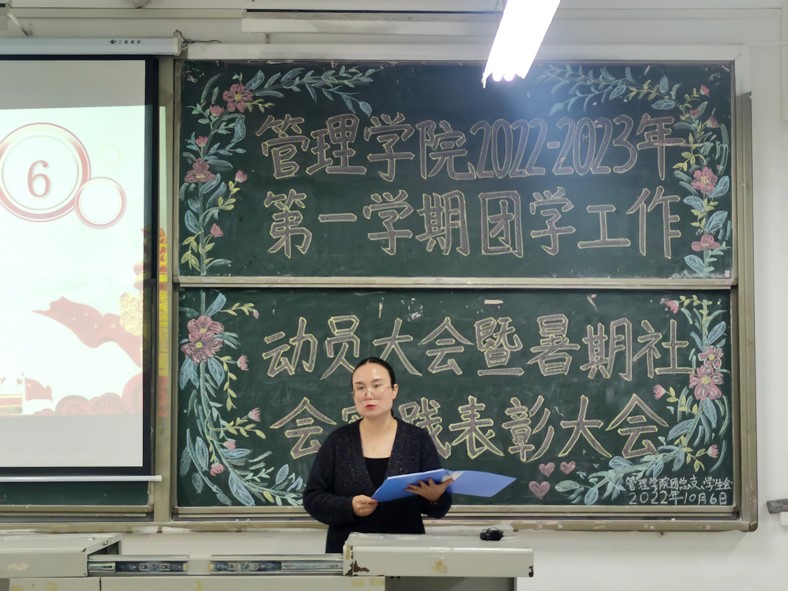 6
管理学院2022-2023年
第一学期团学工作
动员大会暨暑期社
会实践表彰大会
管理学院团总支、学生会
2022年10月6日